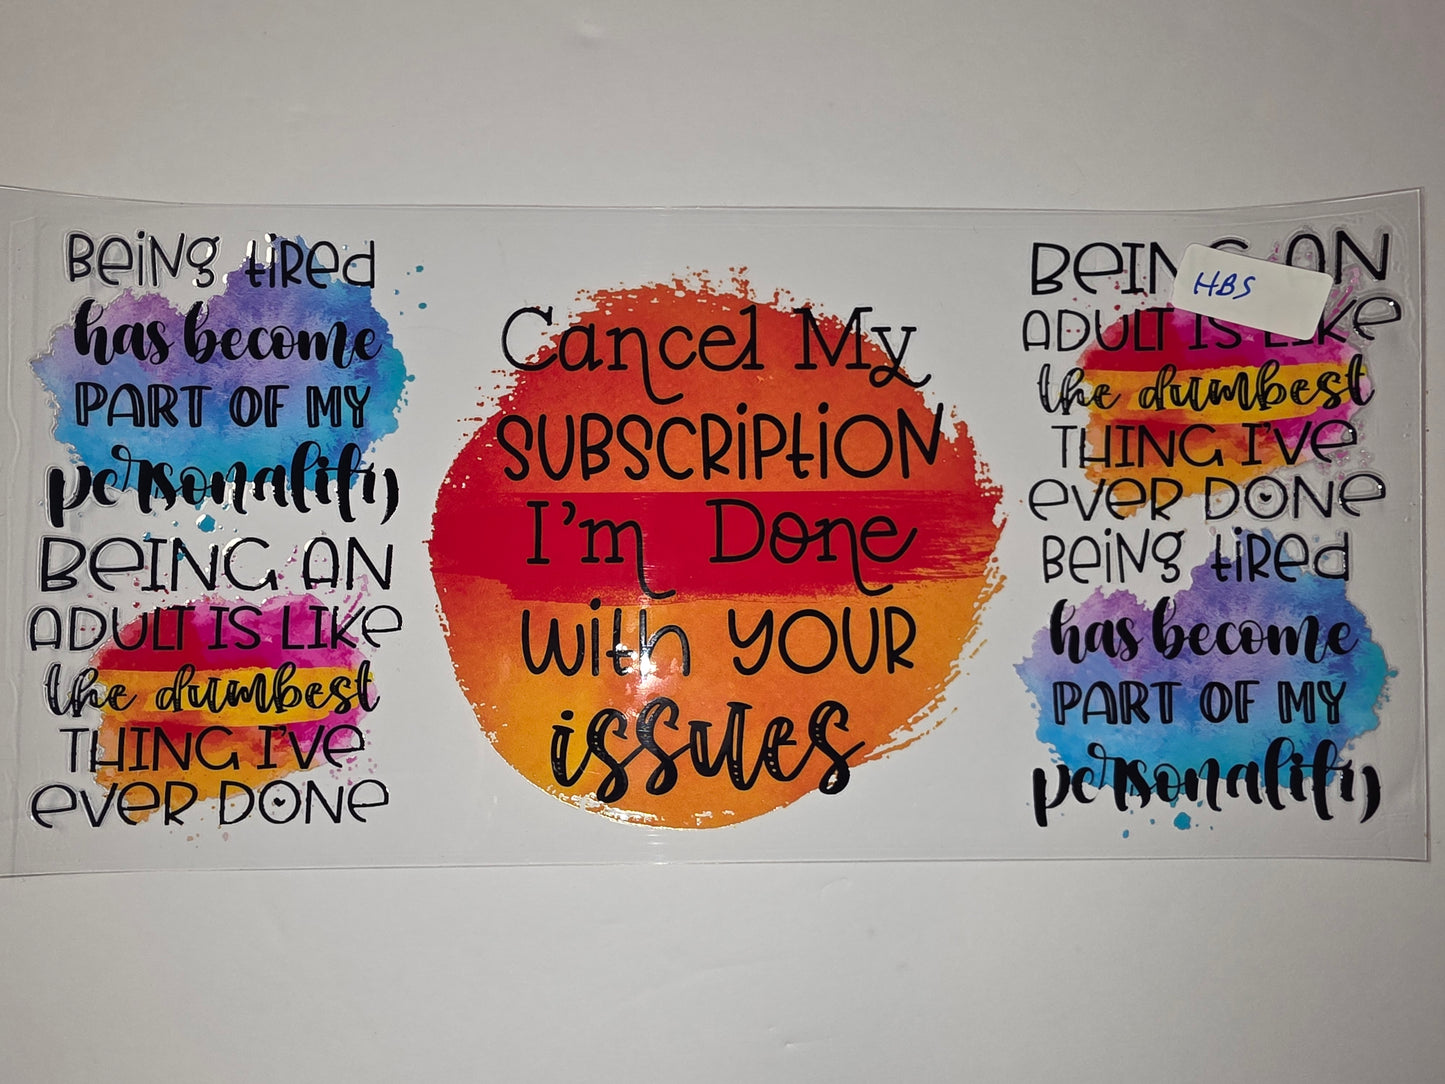 Being tired
has become
PART OF MY
personality
BEING AN
ADULT IS LIKE
the dumbest
THING I'VE
EVER DONE
Cancel My
SUBSCRIPTION
I'm Done
with YOUR
issues
HBS
AN
ADULT IS LIKE
the dumbest
THING I'VE
EVER DONE
Being tired
has become
PART OF MY
personality